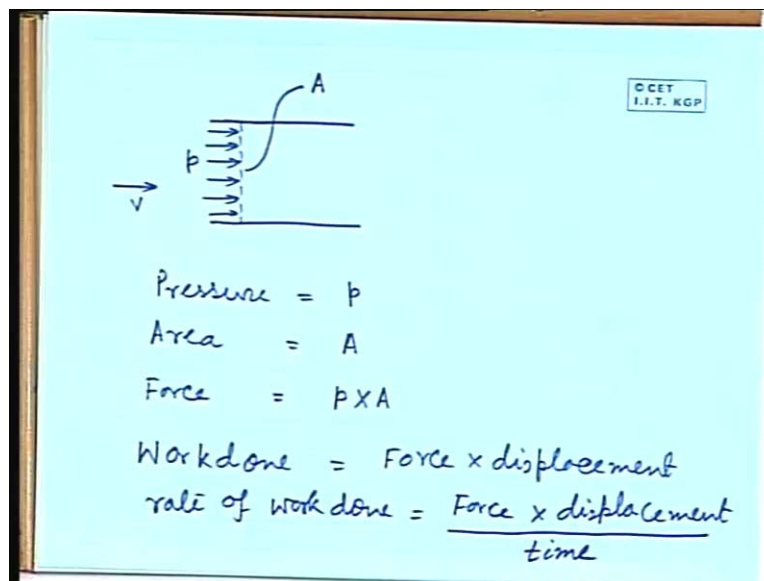 A
© CET
I.I.T. KGP
p
V
Pressure = p
Area = A
Force = p X A
Workdone = Force x displacement
rate of work done = Force x displacement
time